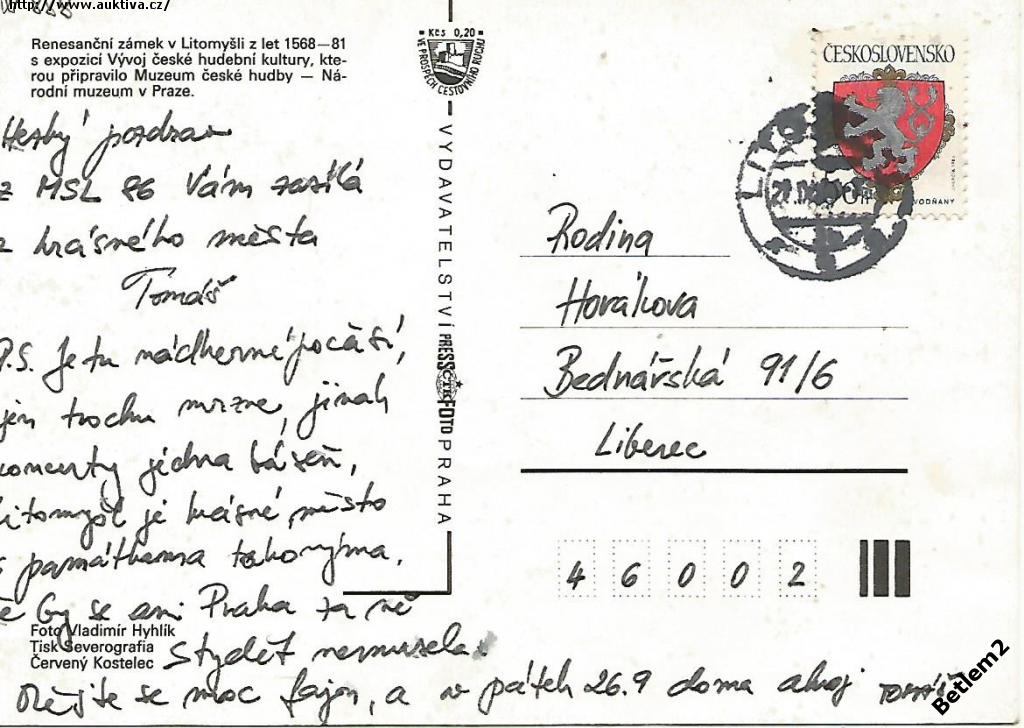 http://www.auktiva.cz/
Renesanční zámek v Litomyšli z let 1568—81
s expozicí Vývoj české hudební kultury, kte-
rou připravilo Muzeum české hudby — Ná-
rodní muzeum v Praze.
Hezký pozdrav
z MSL 86 Vám zasílá
z krásného města
Tomáš
P.S. Je tu nádherné počasí,
jen trochu mrzne, jinak
koncerty jedna báseň,
Litomyšl je krásné město
s památkama takovýma,
že by se ani Praha za ně
stydět nemusela.
Mějte se moc fajn, a v pátek 26.9 doma ahoj Tomáš
Foto Vladimír Hyhlík
Tisk Severografia
Červený Kostelec
Kčs 0,20
VE PROSPĚCH CESTOVNÍHO RUCHU
VYDAVATELSTVÍ PRESSFOTO PRAHA
ČTK
ČESKOSLOVENSKO
VODŇANY
Rodina
Horákova
Bednářská 91/6
Liberec
46002
Betlem2